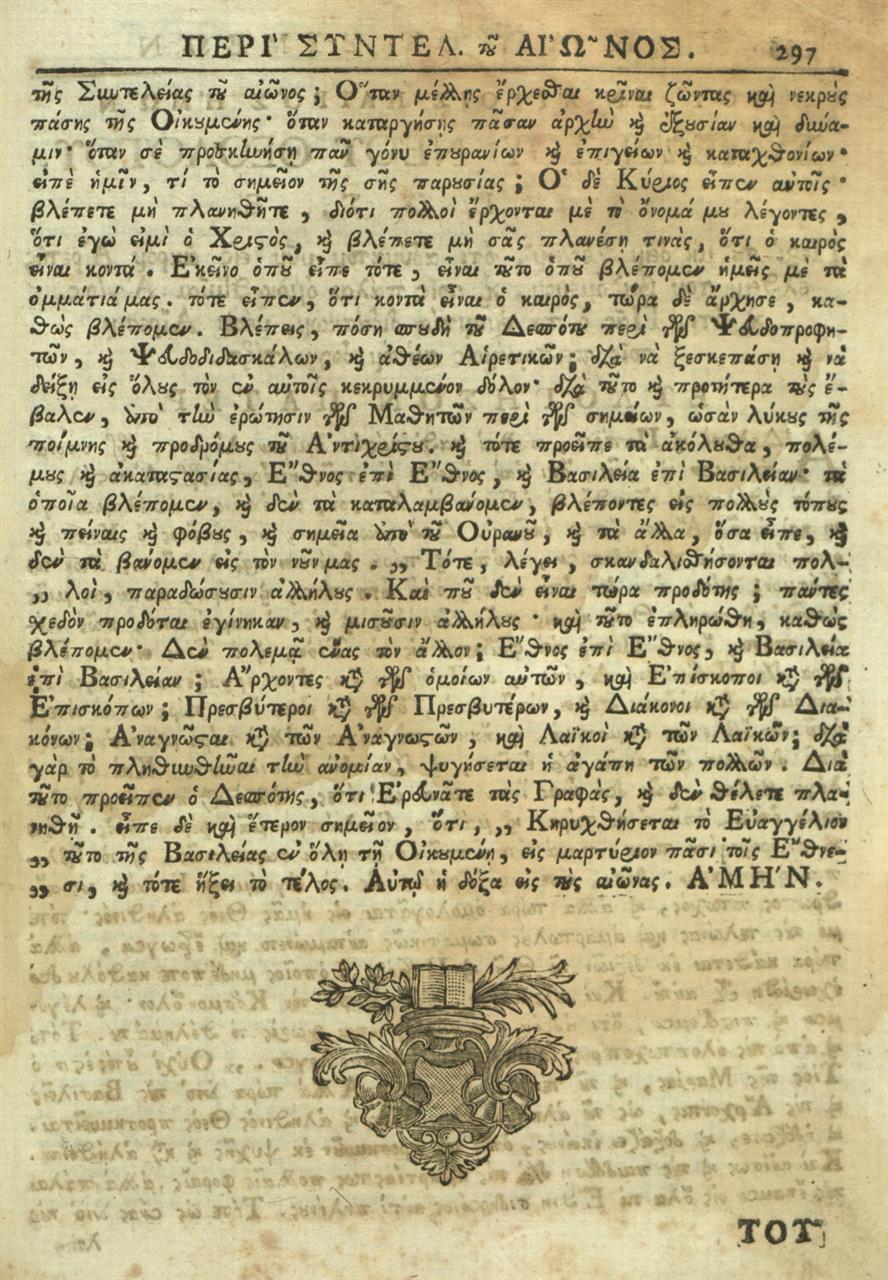 ΠΕΡΙ' ΣΥΝΤΕΛ. τοῦ ΑΙ'Ω~ΝΟΣ. 297
τῆς Συντελείας τοῦ αἰῶνος; Ὅταν μέλλῃς ἔρχεσθαι κρῖναι ζῶντας καὶ νεκροὺς
πάσης τῆς Οἰκουμένης· ὅταν καταργήσῃς πᾶσαν ἀρχὴν καὶ ἐξουσίαν καὶ δύνα-
μιν· ὅταν σὲ προσκυνήσῃ πᾶν γόνυ ἐπουρανίων καὶ ἐπιγείων καὶ καταχθονίων·
εἰπὲ ἡμῖν, τί τὸ σημεῖον τῆς σῆς παρουσίας; Ὁ δὲ Κύριος εἶπεν αὐτοῖς·
βλέπετε μὴ πλανηθῆτε, διότι πολλοὶ ἔρχονται μὲ τὸ ὄνομά μου λέγοντες,
ὅτι ἐγὼ εἰμὶ ὁ Χριστὸς, καὶ βλέπετε μὴ σᾶς πλανέσῃ τινὰς, ὅτι ὁ καιρὸς
εἶναι κοντά. Ἐκεῖνο ὁποῦ εἶπε τότε, εἶναι τοῦτο ὁποῦ βλέπομεν ἡμεῖς μὲ τὰ
ὀμμάτιά μας. τότε εἶπεν, ὅτι κοντὰ εἶναι ὁ καιρὸς, τώρα δὲ ἄρχησε, κα-
θὼς βλέπομεν. Βλέπεις, πόση σπουδὴ τοῦ Δεσπότου περὶ τῶν Ψευδοπροφη-
τῶν, καὶ Ψευδοδιδασκάλων, καὶ ἀθέων Αἱρετικῶν; διὰ νὰ ξεσκεπάσῃ καὶ νὰ
δείξῃ εἰς ὅλους τὸν ἐν αὐτοῖς κεκρυμμένον δόλον· διὰ τοῦτο καὶ προτήτερα τοὺς ἔ-
βαλεν, ἀπὸ τὴν ἐρώτησιν τῶν Μαθητῶν περὶ τῶν σημείων, ὡσὰν λύκους τῆς
ποίμνης καὶ προδρόμους τοῦ Ἀντιχρίστου. καὶ τότε προεῖπε τὰ ἀκόλουθα, πολέ-
μους καὶ ἀκαταστασίας, Ἔθνος ἐπὶ Ἔθνος, καὶ Βασιλεία ἐπὶ Βασιλείαν· τὰ
ὁποῖα βλέπομεν, καὶ δὲν τὰ καταλαμβάνομεν, βλέποντες εἰς πολλοὺς τόπους
καὶ πείναις καὶ φόβους, καὶ σημεῖα ἀπὸ τοῦ Οὐρανοῦ, καὶ τὰ ἄλλα, ὅσα εἶπε, καὶ
δὲν τὰ βάνομεν εἰς τὸν νοῦν μας. ,, Τότε, λέγει, σκανδαλισθήσονται πολ-
,, λοὶ, παραδώσουσιν ἀλλήλους. Καὶ ποῦ δὲν εἶναι τώρα προδότης; πάντες
σχεδὸν προδόται ἐγίνηκαν, καὶ μισοῦσιν ἀλλήλους· καὶ τοῦτο ἐπληρώθη, καθὼς
βλέπομεν· Δὲν πολεμᾷ ἕνας τὸν ἄλλον; Ἔθνος ἐπὶ Ἔθνος, καὶ Βασιλεία
ἐπὶ Βασιλείαν; Ἄρχοντες κατὰ τῶν ὁμοίων αὐτῶν, καὶ Ἐπίσκοποι κατὰ τῶν
Ἐπισκόπων; Πρεσβύτεροι κατὰ τῶν Πρεσβυτέρων, καὶ Διάκονοι κατὰ τῶν Δια-
κόνων; Ἀναγνῶσται κατὰ τῶν Ἀναγνωστῶν, καὶ Λαϊκοὶ κατὰ τῶν Λαϊκῶν; διὰ
γὰρ τὸ πληθυνθῆναι τὴν ἀνομίαν, ψυγήσεται ἡ ἀγάπη τῶν πολλῶν. Διὰ
τοῦτο προεῖπεν ὁ Δεσπότης, ὅτι Ἐρευνᾶτε τὰς Γραφὰς, καὶ δὲν θέλετε πλα-
νηθῆ. εἶπε δὲ καὶ ἕτερον σημεῖον, ὅτι, ,, Κηρυχθήσεται τὸ Εὐαγγέλιον
,, τοῦτο τῆς Βασιλείας ἐν ὅλῃ τῇ Οἰκουμένῃ, εἰς μαρτύριον πᾶσι τοῖς Ἔθνε-
,, σι, καὶ τότε ἥξει τὸ τέλος. Αὐτῷ ἡ δόξα εἰς τοὺς αἰῶνας. Ἀ'ΜΗ'Ν.
ΤΟΥ~